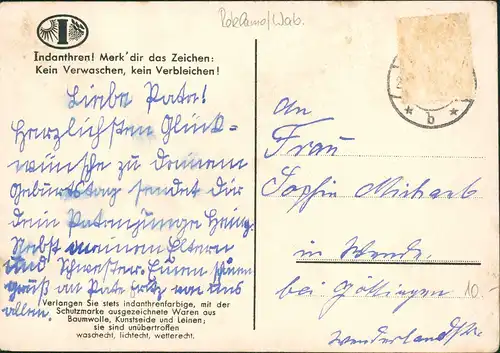 Potekamo/Wab.
I
Indanthren! Merk' dir das Zeichen:
Kein Verwaschen, kein Verbleichen!
Liebe Pate!
Herzlichsten Glück-
wünsche zu deinem
Geburtstag sendet dir
dein Patenjunge Heinz.
Nebst meinen Eltern
und Schwester. Einen schönen
gruß an Pate Fritz von uns
allen.
Verlangen Sie stets indanthrenfarbige, mit der
Schutzmarke ausgezeichnete Waren aus
Baumwolle, Kunstseide und Leinen;
sie sind unübertroffen
waschecht, lichtecht, wetterecht.
* b *
An
Frau
Sophie Michaels
in Weende.
bei Göttingen
10.-